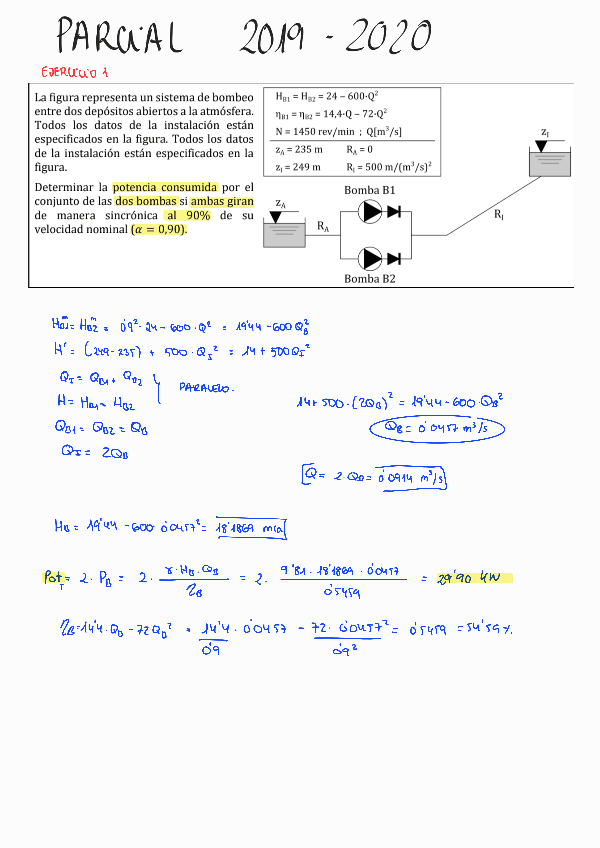 PARCIAL 2019 - 2020
EJERCICIO 1
La figura representa un sistema de bombeo
entre dos depósitos abiertos a la atmósfera.
Todos los datos de la instalación están
especificados en la figura. Todos los datos
de la instalación están especificados en la
figura.
Determinar la potencia consumida por el
conjunto de las dos bombas si ambas giran
de manera sincrónica al 90% de su
velocidad nominal (α = 0,90).
H_B1 = H_B2 = 24 – 600·Q²
η_B1 = η_B2 = 14,4·Q – 72·Q²
N = 1450 rev/min ; Q[m³/s]
z_A = 235 m R_A = 0
z_I = 249 m R_I = 500 m/(m³/s)²
Bomba B1
z_A
R_A
Bomba B2
R_I
z_I
H_B1^m = H_B2^m = 0'9²·24 - 600·Q² = 19'44 - 600Q_B²
H^r = (249-235) + 500·Q_I² = 14 + 500Q_I²
Q_I = Q_B1 + Q_B2
H = H_B1 = H_B2
PARALELO.
Q_B1 = Q_B2 = Q_B
Q_I = 2Q_B
14 + 500·(2Q_B)² = 19'44 - 600·Q_B²
Q_B = 0'0457 m³/s
Q = 2·Q_B = 0'0914 m³/s
H_B = 19'44 - 600·0'0457² = 18'1869 mca
Pot_T = 2·P_B = 2·(γ·H_B·Q_B)/η_B = 2·(9'81·18'1869·0'0457)/0'5459 = 29'90 kW
η_B = 14'4·Q_B - 72Q_B² = 14'4/0'9·0'0457 - 72·0'0457²/0'9² = 0'5459 = 54'59%.